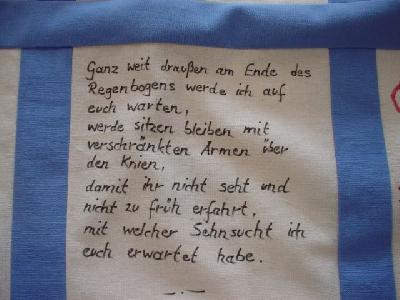 Ganz weit draußen am Ende des
Regenbogens werde ich auf
euch warten,
werde sitzen bleiben mit
verschränkten Armen über
den Knien,
damit ihr nicht seht und
nicht zu früh erfahrt,
mit welcher Sehnsucht ich
euch erwartet habe.